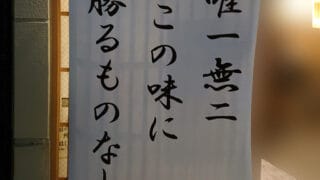 唯一無二
この味に
勝るものなし